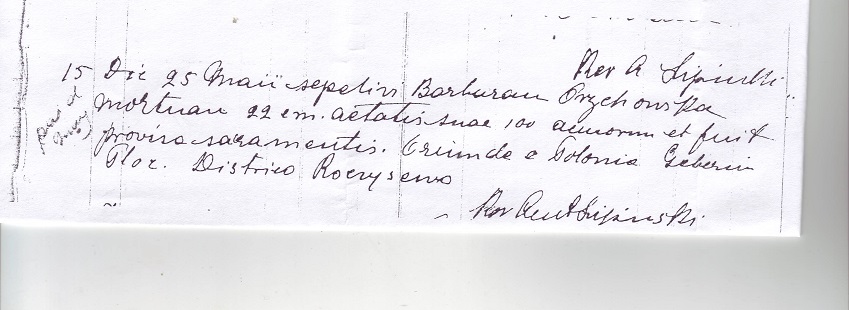 Rev A Lipinski
15 Die 25 Maii sepelivi Barbaram Orzchowska
mortuam 22 em. aetatis suae 100 annorum et fuit
provisa sacramentis. Oriunda e Polonia Gebernia
Ploc. Districo Rocrysewo
Rev Ant Lipinski